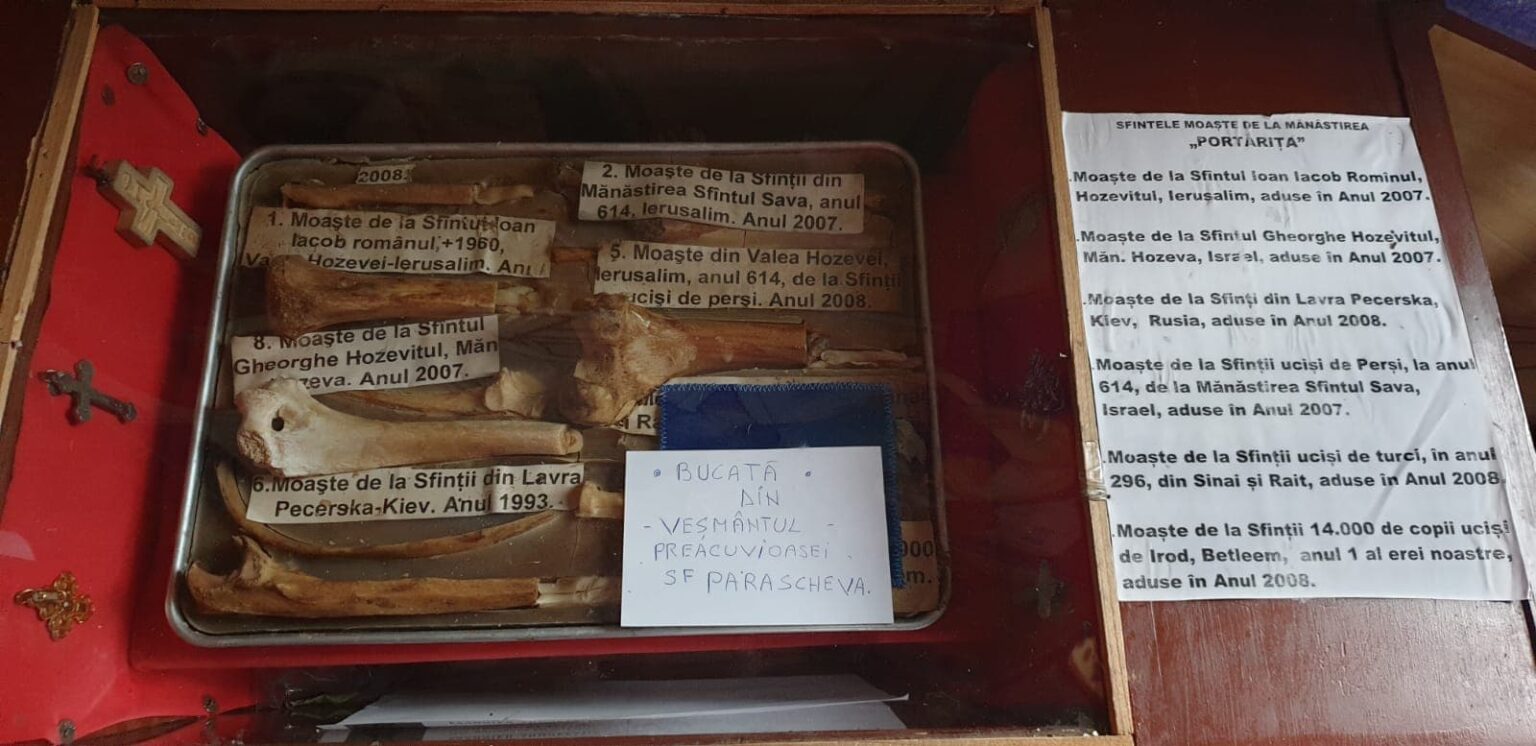 2008.
1. Moaşte de la Sfîntul Ioan
Iacob românul,+1960,
Hozevei-Ierusalim.
2. Moaşte de la Sfinţii din
Mănăstirea Sfîntul Sava, anul
614, Ierusalim. Anul 2007.
5. Moaşte din Valea Hozevei,
Ierusalim, anul 614, de la Sfinţii
ucişi de perşi. Anul 2008.
8. Moaşte de la Sfîntul
Gheorghe Hozevitul, Măn
Anul 2007.
6.Moaşte de la Sfinţii din Lavra
Pecerska-Kiev. Anul 1993.
• BUCATĂ •
DIN
- VEȘMÂNTUL -
PREACUVIOASEI
SF PARASCHEVA.
SFINTELE MOAŞTE DE LA MĂNĂSTIREA
„PORTĂRIŢA”
.Moaşte de la Sfîntul Ioan Iacob Romînul,
Hozevitul, Ierusalim, aduse în Anul 2007.
.Moaşte de la Sfîntul Gheorghe Hozevitul,
Măn. Hozeva, Israel, aduse în Anul 2007.
.Moaşte de la Sfinţi din Lavra Pecerska,
Kiev, Rusia, aduse în Anul 2008.
.Moaşte de la Sfinţii ucişi de Perşi, la anul
614, de la Mănăstirea Sfîntul Sava,
Israel, aduse în Anul 2007.
.Moaşte de la Sfinţii ucişi de turci, în anul
296, din Sinai şi Rait, aduse în Anul 2008.
.Moaşte de la Sfinţii 14.000 de copii ucişi
de Irod, Betleem, anul 1 al erei noastre,
aduse în Anul 2008.